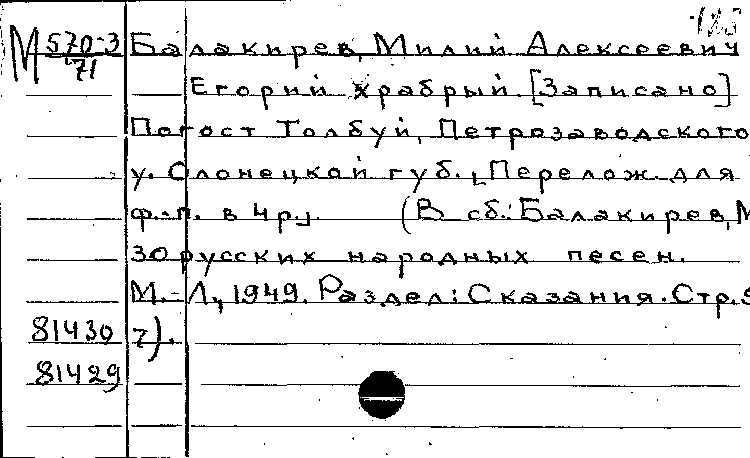 123
М 570-3/71
Балакирев, Милий Алексеевич
Егорий храбрый. [Записано]
Погост Толбуй, Петрозаводского
у. Олонецкой губ., Перелож. для
ф.-п. в 4 р.] (В сб.: Балакирев, М
30 русских народных песен.
М.-Л., 1949. Раздел: Сказания. Стр.
81430 7).
81429